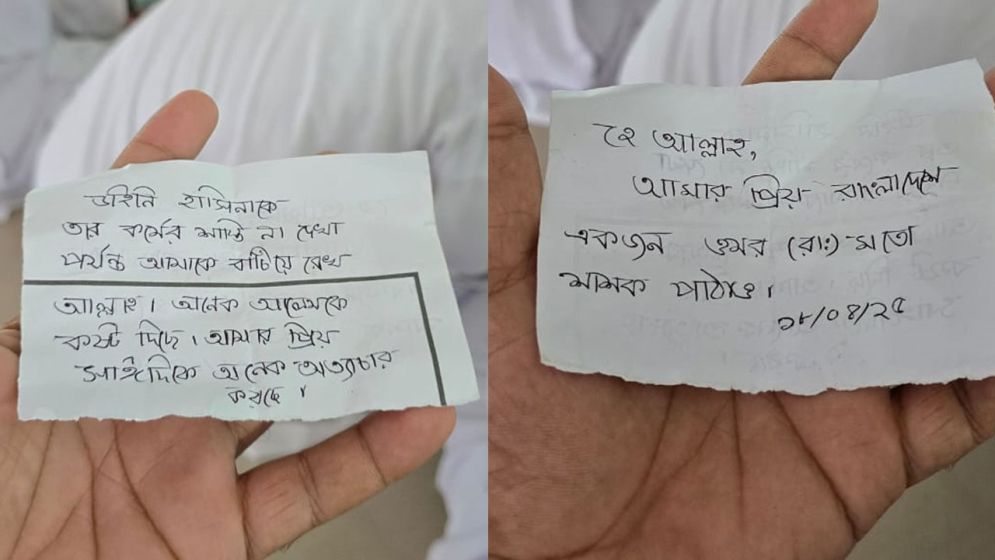 ডাইনি হাসিনাকে
তার কর্মের শাস্তি না দেখা
পর্যন্ত আমাকে বাঁচিয়ে রেখ
আল্লাহ। অনেক আলেমকে
কষ্ট দিছে। আমার প্রিয়
সাঈদিকে অনেক অত্যাচার
করছে।
হে আল্লাহ,
আমার প্রিয় বাংলাদেশে
একজন ওমর (রাঃ) মতো
শাসক পাঠাও।
১৮/০৪/২৫